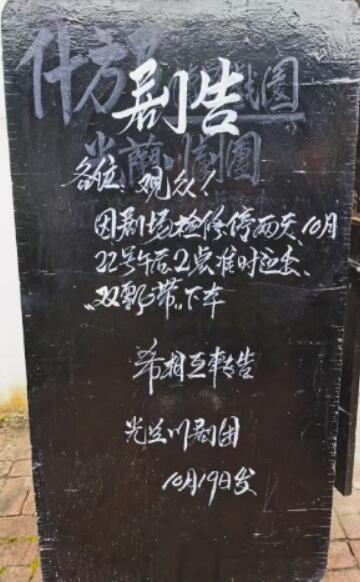 什方
剧告
劇團
各位观众!
因剧场检修停两天、10月
22号午后2点准时迎来、
"双飘带"下车
希相互转告
光兰川剧团
10月19日发